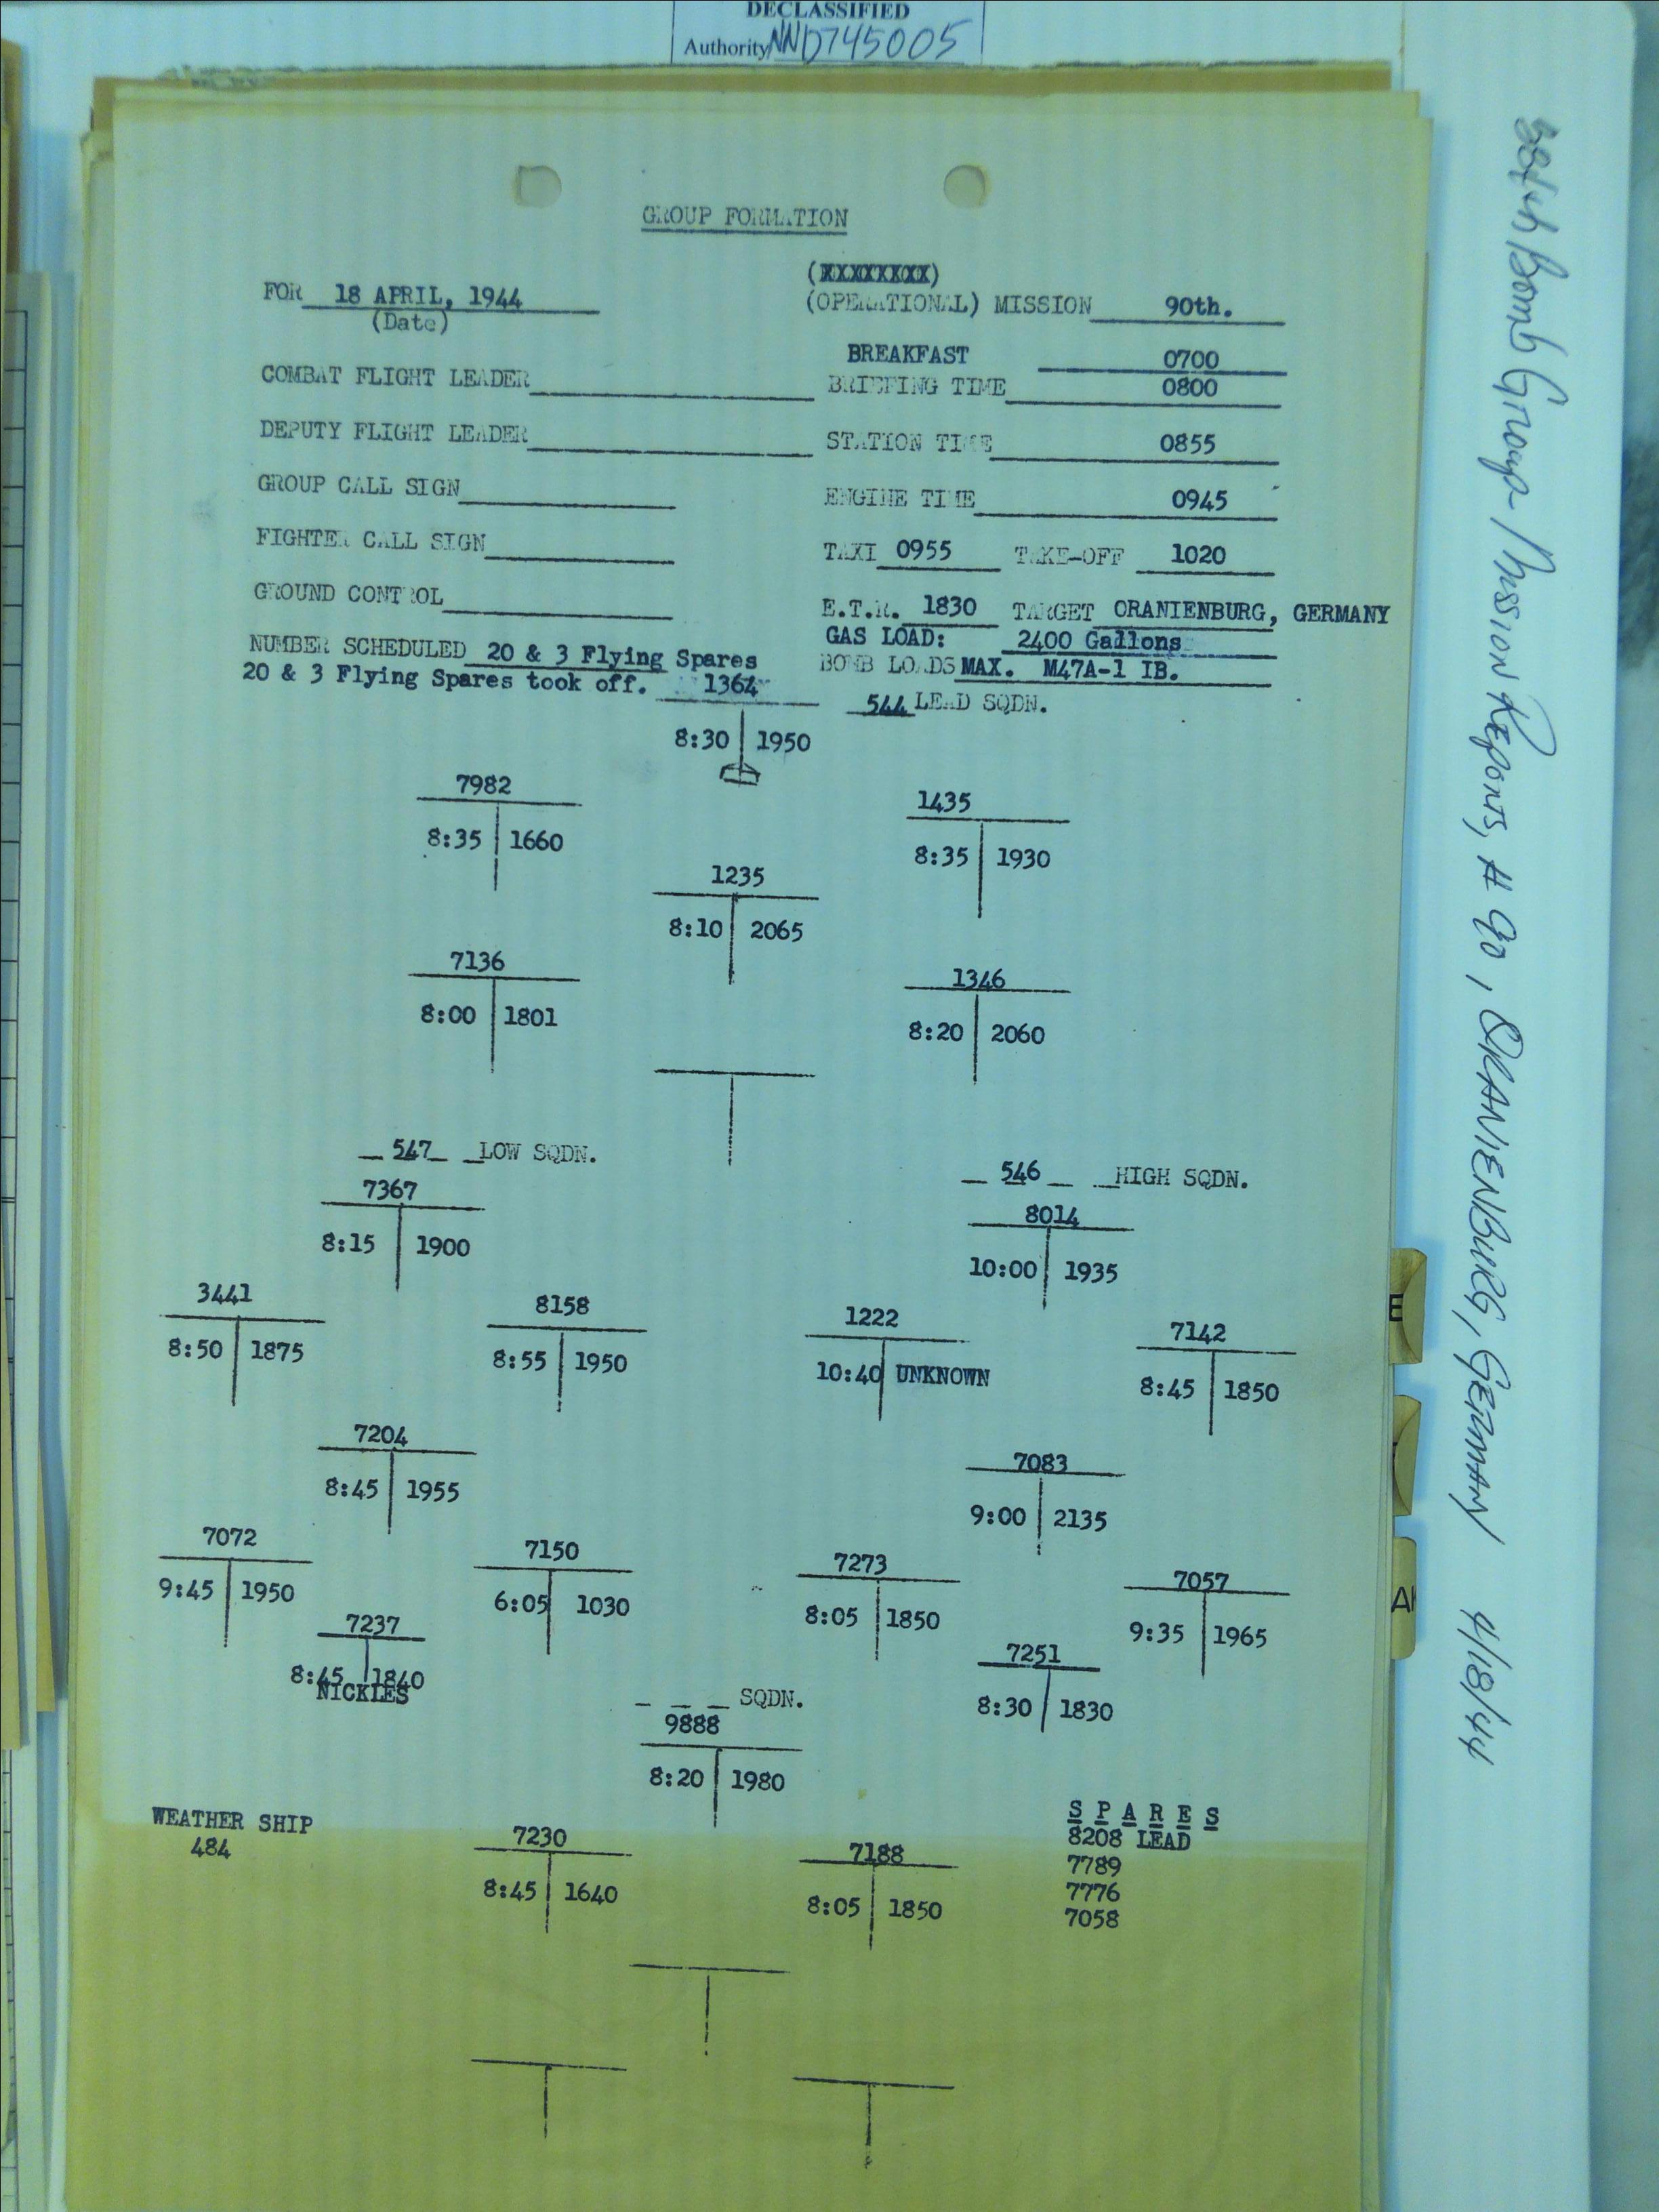 DECLASSIFIED
Authority NND745005
GROUP FORMATION
(XXXXXXXX)
FOR 18 APRIL, 1944
(Date)
(OPERATIONAL) MISSION 90th.
BREAKFAST 0700
COMBAT FLIGHT LEADER
BRIEFING TIME 0800
DEPUTY FLIGHT LEADER
STATION TIME 0855
GROUP CALL SIGN
ENGINE TIME 0945
FIGHTER CALL SIGN
TAXI 0955 TAKE-OFF 1020
GROUND CONTROL
E.T.R. 1830 TARGET ORANIENBURG, GERMANY
GAS LOAD: 2400 Gallons
NUMBER SCHEDULED 20 & 3 Flying Spares
BOMB LOADS MAX. M47A-1 IB.
20 & 3 Flying Spares took off. 1364
544 LEAD SQDN.
8:30 1950
7982
8:35 1660
1435
8:35 1930
1235
8:10 2065
7136
8:00 1801
1346
8:20 2060
547 LOW SQDN.
546 HIGH SQDN.
7367
8:15 1900
8014
10:00 1935
3441
8:50 1875
8158
8:55 1950
1222
10:40 UNKNOWN
7142
8:45 1850
7204
8:45 1955
7083
9:00 2135
7072
9:45 1950
7150
6:05 1030
7273
8:05 1850
7057
9:35 1965
7237
8:45 1840
NICKLES
7251
8:30 1830
SQDN.
9888
8:20 1980
WEATHER SHIP
484
7230
8:45 1640
7188
8:05 1850
S P A R E S
8208 LEAD
7789
7776
7058
384th Bomb Group Mission Reports, # 90, ORANIENBURG, GERMANY 4/18/44
E
A